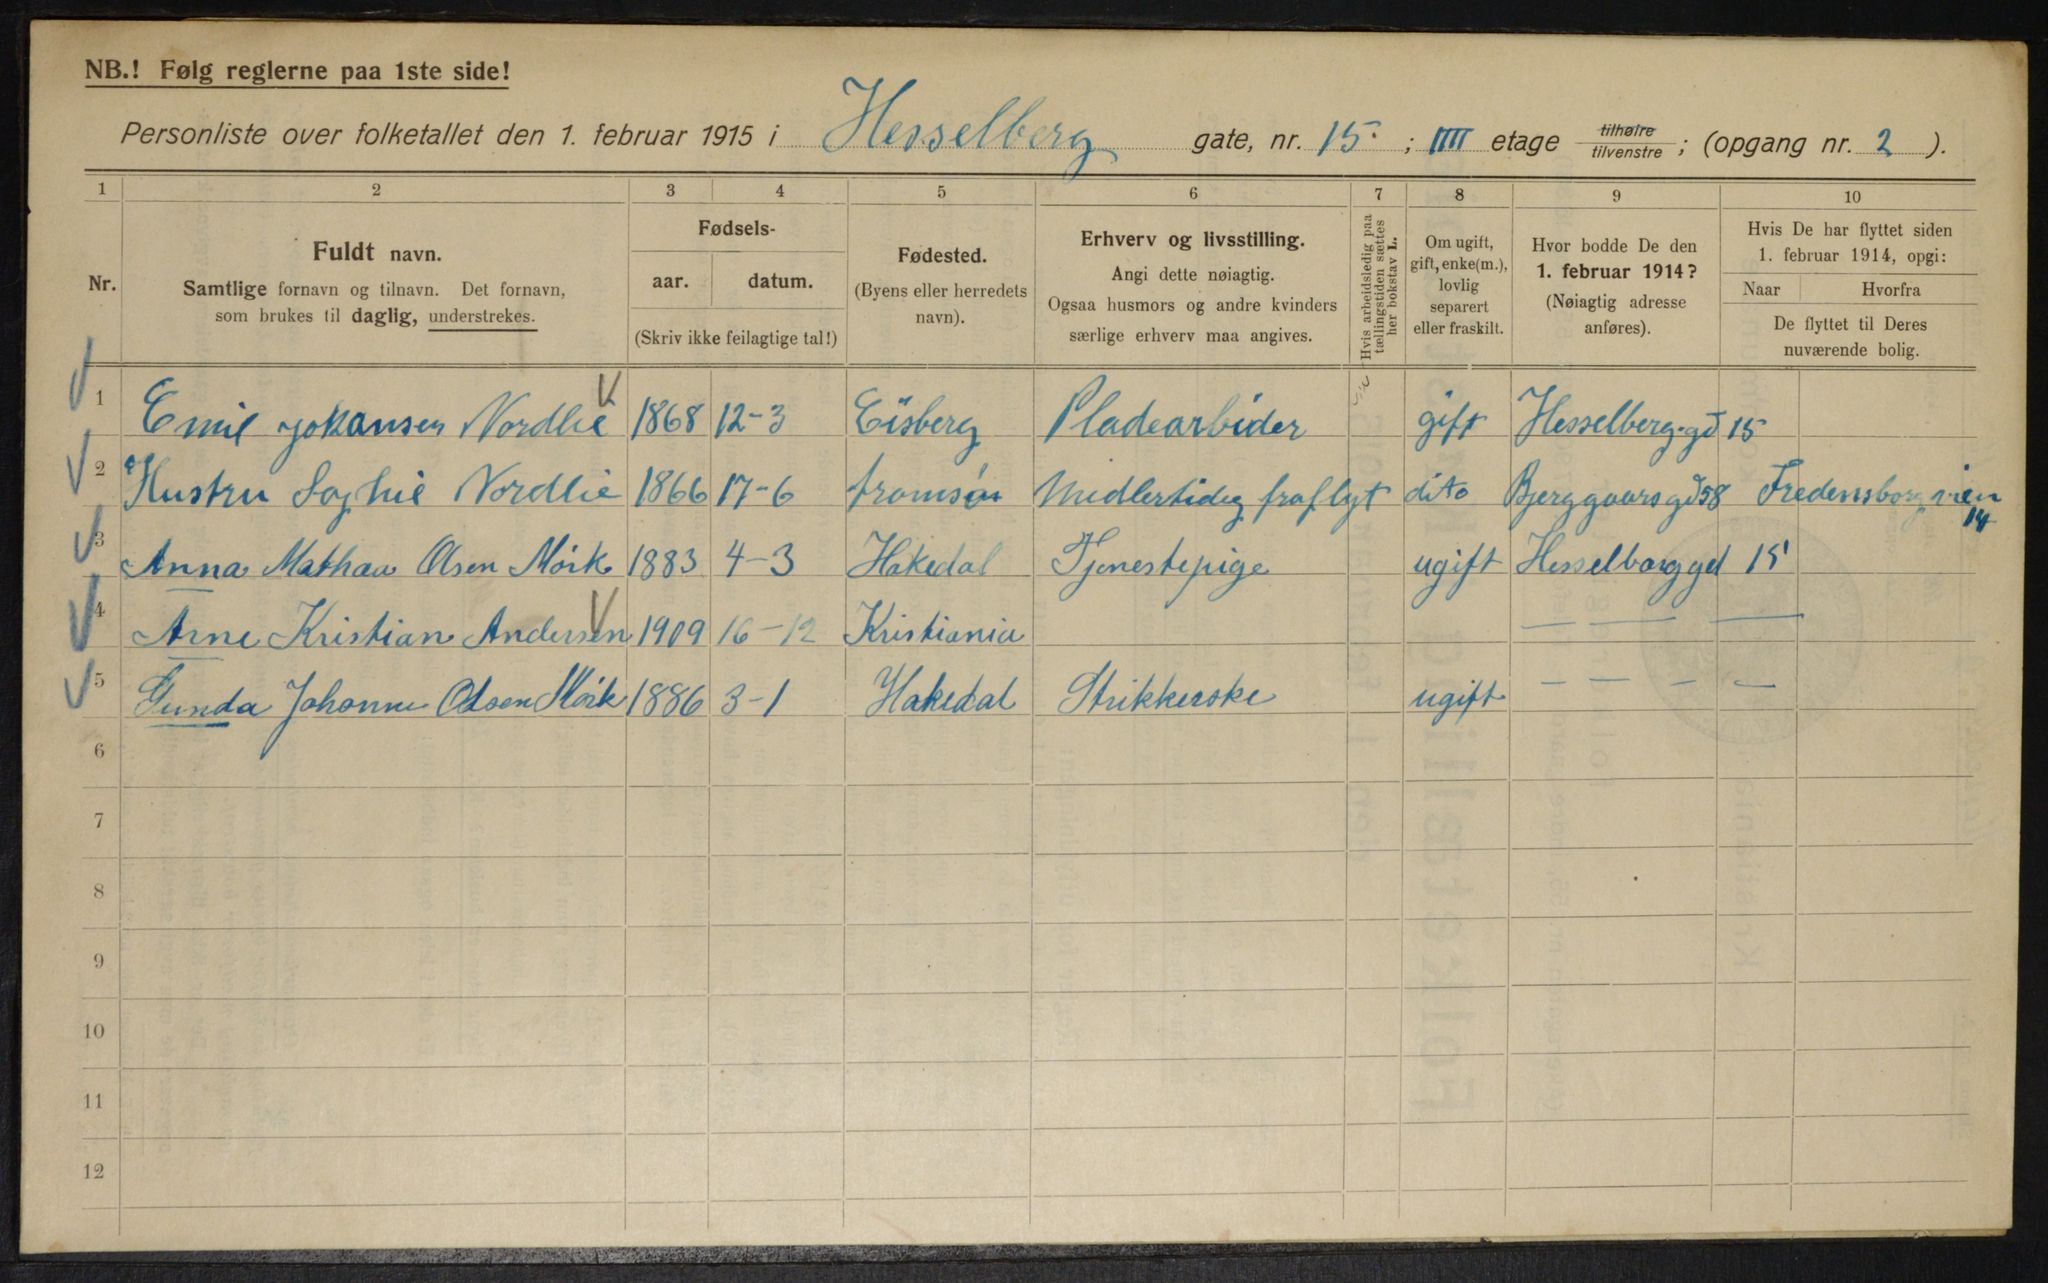 NB.! Følg reglerne paa 1ste side!
Personliste over folketallet den 1. februar 1915 i Hesselberg gate, nr. 15 ; IIII etage tilhøire tilvenstre ; (opgang nr. 2 ).
1 2 3 4 5 6 7 8 9 10
Nr.
Fuldt navn.
Samtlige fornavn og tilnavn. Det fornavn,
som brukes til daglig, understrekes.
Fødsels-
aar. datum.
(Skriv ikke feilagtige tal!)
Fødested.
(Byens eller herredets
navn).
Erhverv og livsstilling.
Angi dette nøiagtig.
Ogsaa husmors og andre kvinders
særlige erhverv maa angives.
Hvis arbeidsledig paa
tællingstiden sættes
her bokstav L.
Om ugift,
gift, enke(m.),
lovlig
separert
eller fraskilt.
Hvor bodde De den
1. februar 1914?
(Nøiagtig adresse
anføres).
Hvis De har flyttet siden
1. februar 1914, opgi:
Naar Hvorfra
De flyttet til Deres
nuværende bolig.
1 Emil Johansen Nordlie 1868 12-3 Eisberg Pladearbider gift Hesselberg.gd 15
2 Hustru Sophie Nordlie 1866 17-6 tromsön Midlertidig fraflyt dito Bjerggaarsgd 58 Fredensborgvien 14
3 Anna Mathea Olsen Mörk 1883 4-3 Hakedal Tjenestepige ugift Hesselbarg gd 15
4 Arne Kristian Andersen 1909 16-12 Kristiania — — — —
5 Gunda Johanne Olsen Mörk 1886 3-1 Hakedal Strikkerske ugift — — — —
6
7
8
9
10
11
12